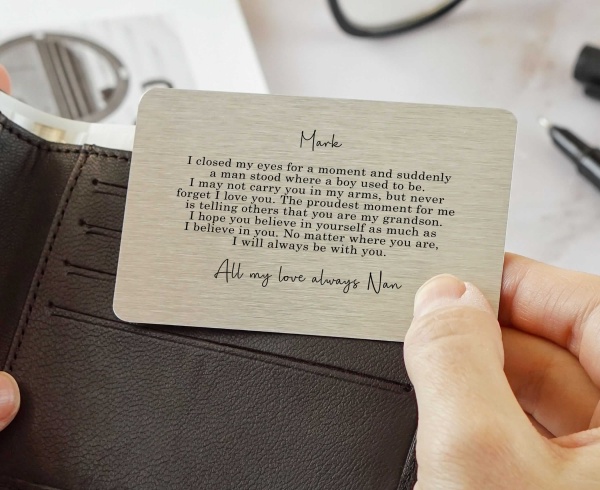 Mark
I closed my eyes for a moment and suddenly
a man stood where a boy used to be.
I may not carry you in my arms, but never
forget I love you. The proudest moment for me
is telling others that you are my grandson.
I hope you believe in yourself as much as
I believe in you. No matter where you are,
I will always be with you.
All my love always Nan